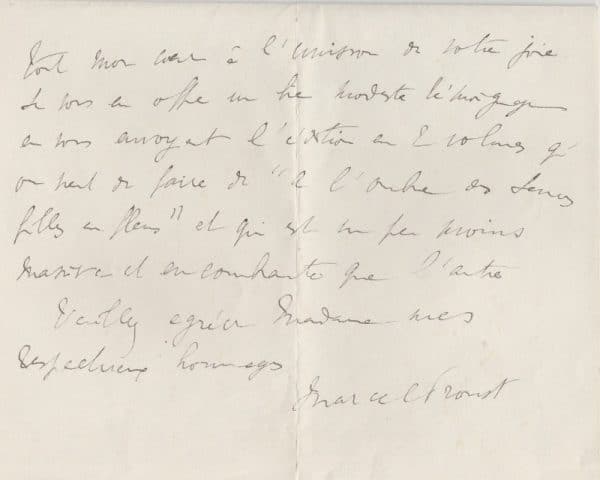 tout mon cœur à l'unisson de votre joie
Je vous en offre un très modeste témoignage
en vous envoyant l'édition en 2 volumes qu'
on vient de faire de "à l'ombre des Jeunes
filles en fleurs" et qui est un peu moins
massive et encombrante que l'autre
Veuillez agréer Madame mes
respectueux hommages
Marcel Proust